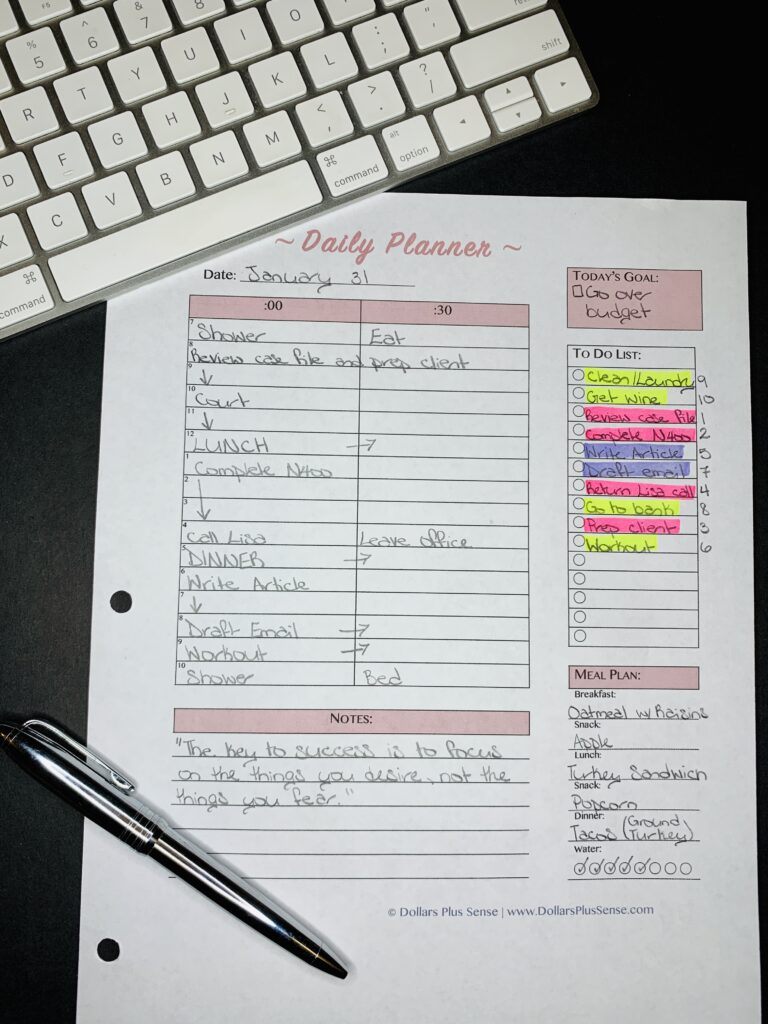 F5
%
5
^
6
&
7
*
8
(
9
)
0
R
T
Y
U
I
O
P
shift
D
F
G
H
J
K
L
:
;
"
'
X
C
V
B
N
M
<
,
>
.
?
/
⌘
command
⌘
command
alt
option
~ Daily Planner ~
Date: January 31
:00 :30
7 Shower Eat
8 Review case file and prep client
9 ↓
10 Court
11 ↓
12 LUNCH →
1 Complete N400
2
3 ↓
4 Call Lisa Leave office
5 DINNER →
6 Write Article
7 ↓
8 Draft Email →
9 Workout →
10 Shower Bed
NOTES:
"The key to success is to focus
on the things you desire, not the
things you fear."
TODAY'S GOAL:
Go over
budget
TO DO LIST:
Clean/Laundry 9
Get wine 10
Review case file 1
Complete N400 2
Write Article 5
Draft email 7
Return Lisa call 4
Go to bank 8
Prep client 3
Workout 6
MEAL PLAN:
Breakfast:
Oatmeal w/ Raisins
Snack:
Apple
Lunch:
Turkey Sandwich
Snack:
Popcorn
Dinner:
Tacos (Ground Turkey)
Water:
© Dollars Plus Sense | www.DollarsPlusSense.com